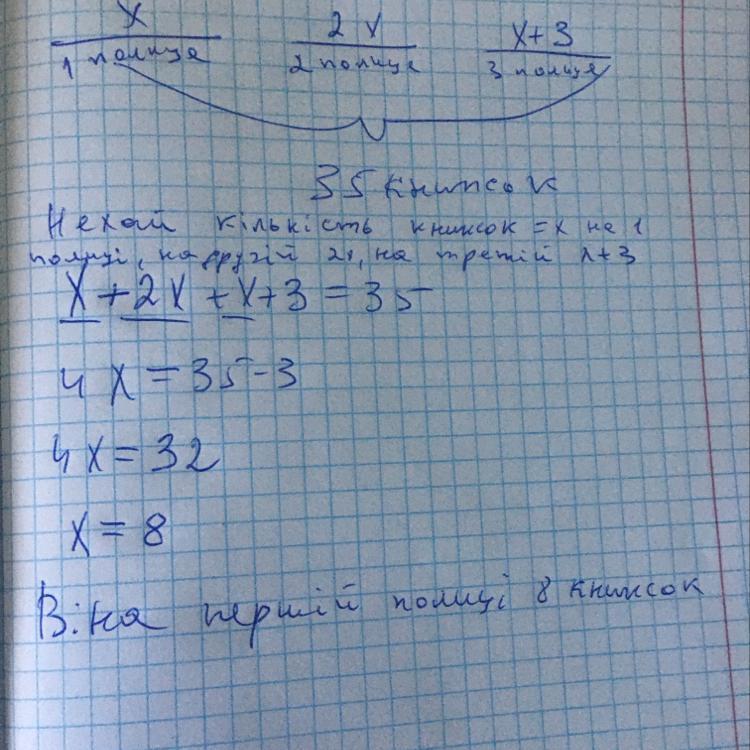 x 2x x+3
1 полиця 2 полиця 3 полиця
35 книжок
Нехай кількість книжок = x на 1
полиці, на другій 2x, на третій x+3
x + 2x + x + 3 = 35
4x = 35 - 3
4x = 32
x = 8
В: на першій полиці 8 книжок